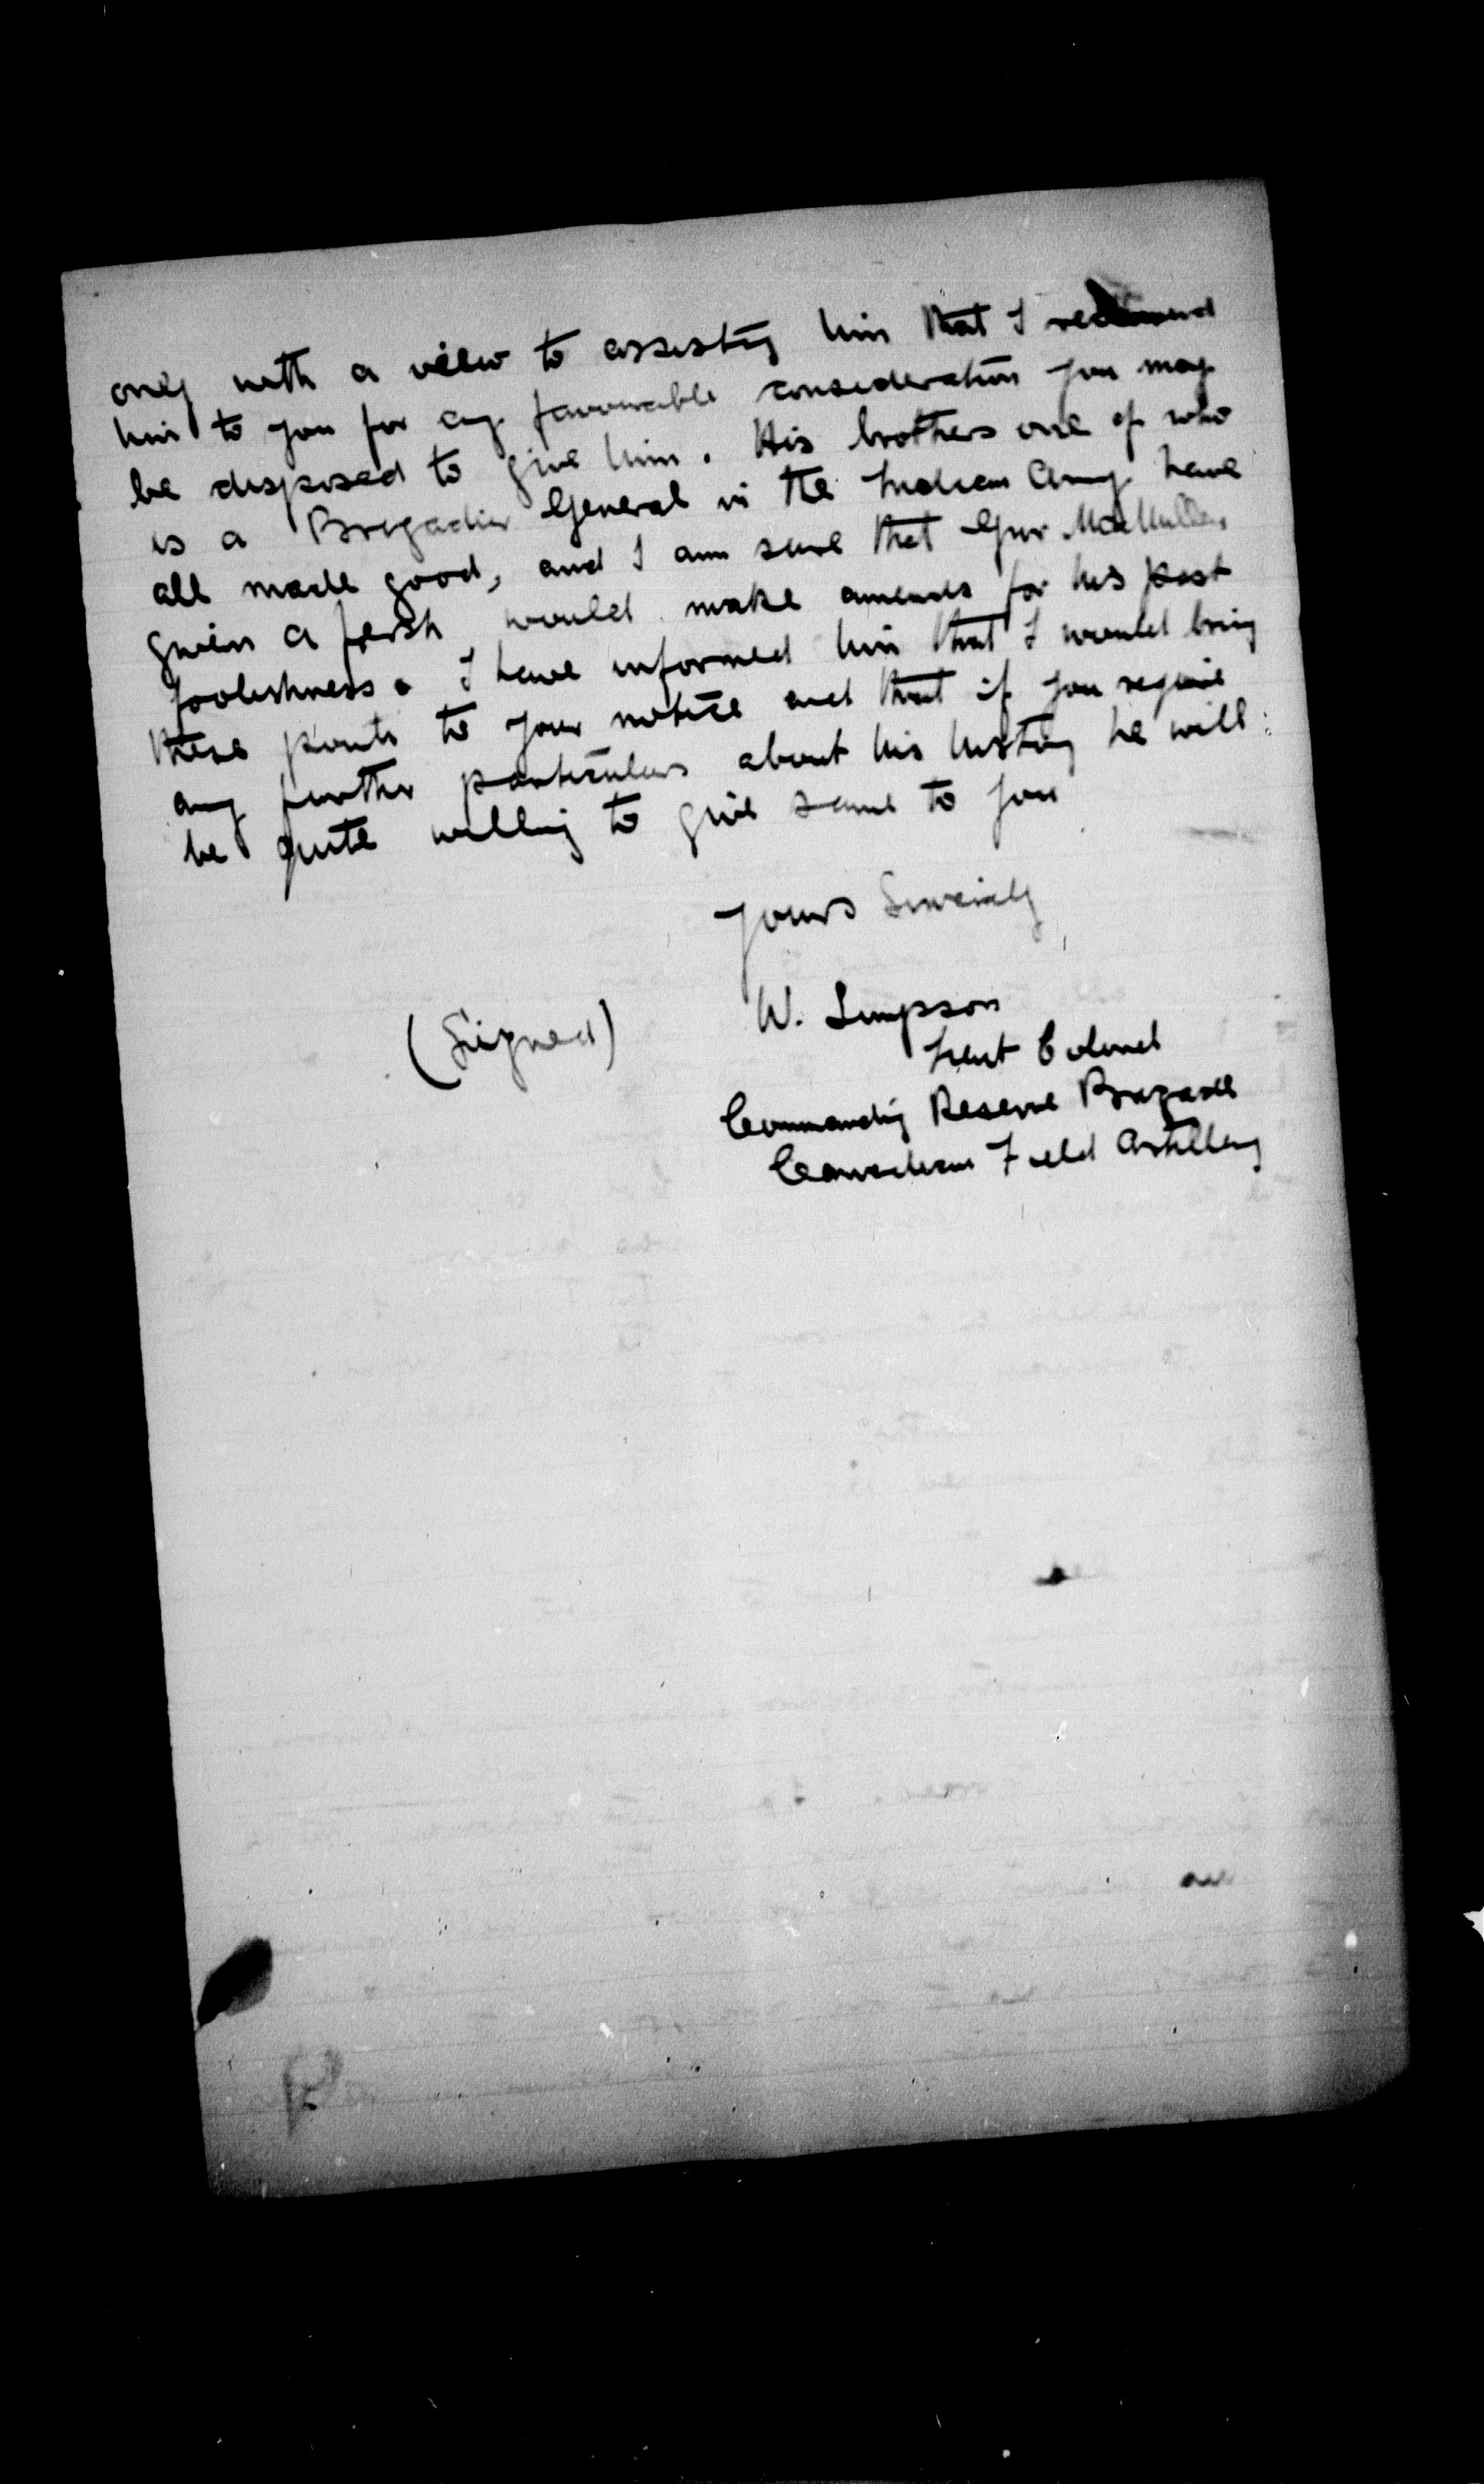 only with a view to assisting him that I recommend
him to you for any favourable consideration you may
be disposed to give him. His brothers one of who
is a Brigadier General in the Indian Army have
all made good, and I am sure that Gnr MacMullen
given a fresh would make amends for his past
foolishness. I have informed him that I would bring
these points to your notice and that if you require
any further particulars about his history he will
be quite willing to give same to you
Yours Sincerely
(Signed) W. Simpson
Lieut Colonel
Commanding Reserve Brigade
Canadian Field Artillery